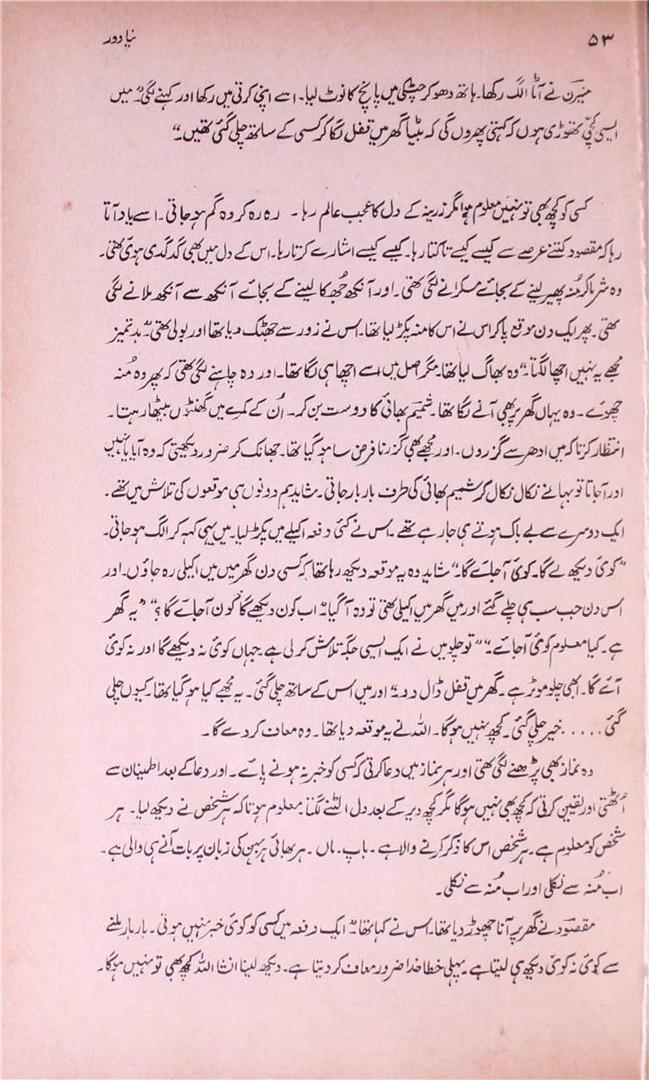 ۵۳
نیا دور
میرن نے آٹا الگ رکھا۔ ہاتھ دھو کر چٹکی میں پانچ کا نوٹ لیا۔ اسے اپنی کرتی میں رکھا اور کہنے لگی۔" میں
ایسی کچی تھوڑی ہوں کہ کہتی پھروں گی کہ بٹیا گھر میں قفل لگا کر کسی کے ساتھ چلی گئی تھیں۔"
کسی کو کچھ بھی تو نہیں معلوم ہوا مگر زرینہ کے دل کا عجب عالم رہا۔ رہ رہ کر وہ گم ہو جاتی۔ اسے یاد آتا
رہا کہ مقصود کتنے عرصے سے کیسے کیسے تاکتا رہا۔ کیسے کیسے اشارے کرتا رہا۔ اس کے دل میں بھی گدگدی ہوئی تھی۔
وہ شرما کر مُنہ پھیر لینے کے بجائے مسکرانے لگی تھی۔ اور آنکھ جُھکا لینے کے بجائے آنکھ سے آنکھ ملانے لگی
تھی۔ پھر ایک دن موقع پا کر اس نے اس کا منہ پکڑ لیا تھا۔ اس نے زور سے جھٹک دیا تھا اور بولی تھی۔" بدتمیز
مجھے یہ نہیں اچھا لگتا۔" وہ بھاگ لیا تھا۔ مگر اصل میں اسے اچھا ہی لگا تھا۔ اور وہ چاہنے لگی تھی کہ پھر وہ مُنہ
چھوئے۔ وہ یہاں گھر پر بھی آنے لگا تھا۔ شمیم بھائی کا دوست بن کر۔ اُن کے کمرے میں گھنٹوں بیٹھا رہتا۔
انتظار کرتا کہ میں ادھر سے گزروں۔ اور مجھے بھی گزرنا فرض سا ہو گیا تھا۔ جھانک کر ضرور دیکھتی کہ وہ آیا یا نہیں
اور آجاتا تو بہانے نکال نکال کر شمیم بھائی کی طرف بار بار جاتی۔ شاید ہم دونوں ہی موقعوں کی تلاش میں تھے۔
ایک دوسرے سے بے باک ہوتے ہی جا رہے تھے۔ اس نے کئی دفعہ اکیلے میں پکڑ لیا۔ میں یہی کہہ کر الگ ہو جاتی۔
"کوئی دیکھ لے گا۔ کوئی آجائے گا۔" شاید وہ یہ موقعہ دیکھ رہا تھا کہ کسی دن گھر میں میں اکیلی رہ جاؤں۔ اور
اس دن جب سب ہی چلے گئے اور میں گھر میں اکیلی تھی تو وہ آگیا۔" اب کون دیکھے گا کون آجائے گا؟" "یہ گھر
ہے۔ کیا معلوم کوئی آجائے۔" "تو چلو میں نے ایک ایسی جگہ تلاش کر لی ہے۔ جہاں کوئی نہ دیکھے گا اور نہ کوئی
آئے گا۔ ابھی چلو موٹر ہے۔ گھر میں قفل ڈال دو۔" اور میں اس کے ساتھ چلی گئی۔ یہ مجھے کیا ہو گیا تھا۔ کیوں چلی
گئی ..... خیر چلی گئی۔ کچھ نہیں ہوگا۔ اللہ نے یہ موقعہ دیا تھا۔ وہ معاف کر دے گا۔
وہ نماز بھی پڑھنے لگی تھی اور ہر نماز میں دعا کرتی کہ کسی کو خبر نہ ہونے پائے۔ اور دعا کے بعد اطمینان سے
اُٹھتی اور یقین کرتی کہ کچھ بھی نہیں ہوگا مگر کچھ دیر کے بعد دل الٹنے لگتا۔ معلوم ہوتا کہ ہر شخص نے دیکھ لیا۔ ہر
شخص کو معلوم ہے۔ ہر شخص اس کا ذکر کرنے والا ہے۔ باپ۔ ماں۔ ہر بھائی ہر بہن کی زبان پر بات آنے ہی والی ہے۔
اب مُنہ سے نکلی اور اب مُنہ سے نکلی۔
مقصود نے گھر پر آنا چھوڑ دیا تھا۔ اس نے کہا تھا۔" ایک دفعہ میں کسی کو کوئی خبر نہیں ہوتی۔ بار بار ملنے
سے کوئی نہ کوئی دیکھ ہی لیتا ہے۔ پہلی خطا خدا ضرور معاف کر دیتا ہے۔ دیکھ لینا انشا اللہ کچھ بھی تو نہیں ہوگا۔